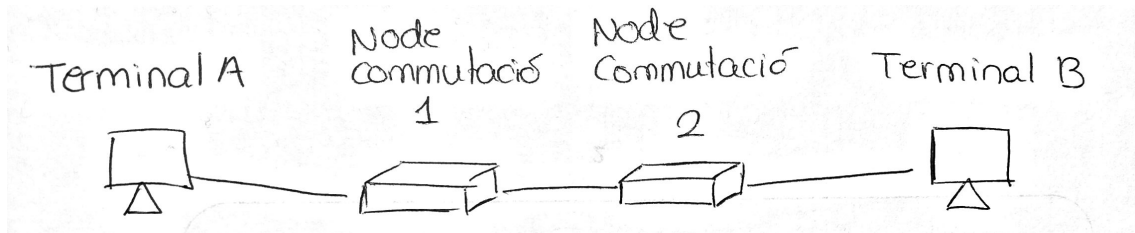 Terminal A
Node
commutació
1
Node
Commutació
2
Terminal B